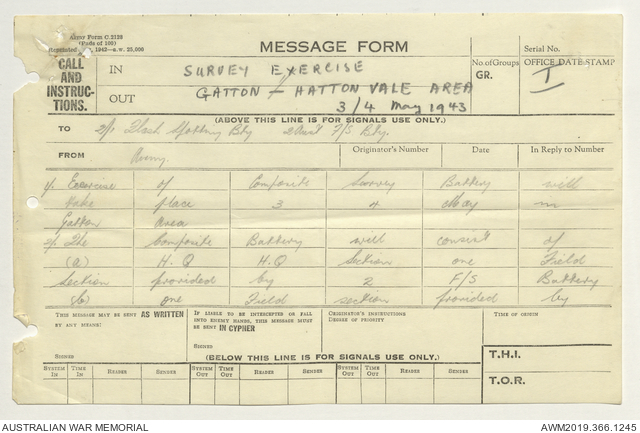 Army Form C.2128
(Pads of 100)
MESSAGE FORM
Serial No.
CALL AND INSTRUC- TIONS.
IN
SURVEY EXERCISE
No. of Groups
GR.
OFFICE DATE STAMP
I
OUT
GATTON - HATTON VALE AREA
3/4 May 1943
(ABOVE THIS LINE IS FOR SIGNALS USE ONLY.)
TO 2/1 Flash Spotting Bty F/S Bty.
FROM Army.
Originator's Number
Date
In Reply to Number
1/. Exercise of Composite Survey Battery will
take place 3 4 May in
Gatton area
2/. The Composite Battery will consist of
(a) H.Q H.Q Section one Field
Section provided by 2 F/S Battery
(b) one Field section provided by
THIS MESSAGE MAY BE SENT AS WRITTEN BY ANY MEANS:
SIGNED
IF LIABLE TO BE INTERCEPTED OR FALL INTO ENEMY HANDS, THIS MESSAGE MUST BE SENT IN CIPHER
SIGNED
ORIGINATOR'S INSTRUCTIONS
DEGREE OF PRIORITY
TIME OF ORIGIN
(BELOW THIS LINE IS FOR SIGNALS USE ONLY.)
T.H.I.
SYSTEM IN TIME IN READER SENDER SYSTEM OUT TIME OUT READER SENDER SYSTEM OUT TIME OUT READER SENDER
T.O.R.
AUSTRALIAN WAR MEMORIAL
AWM2019.366.1245